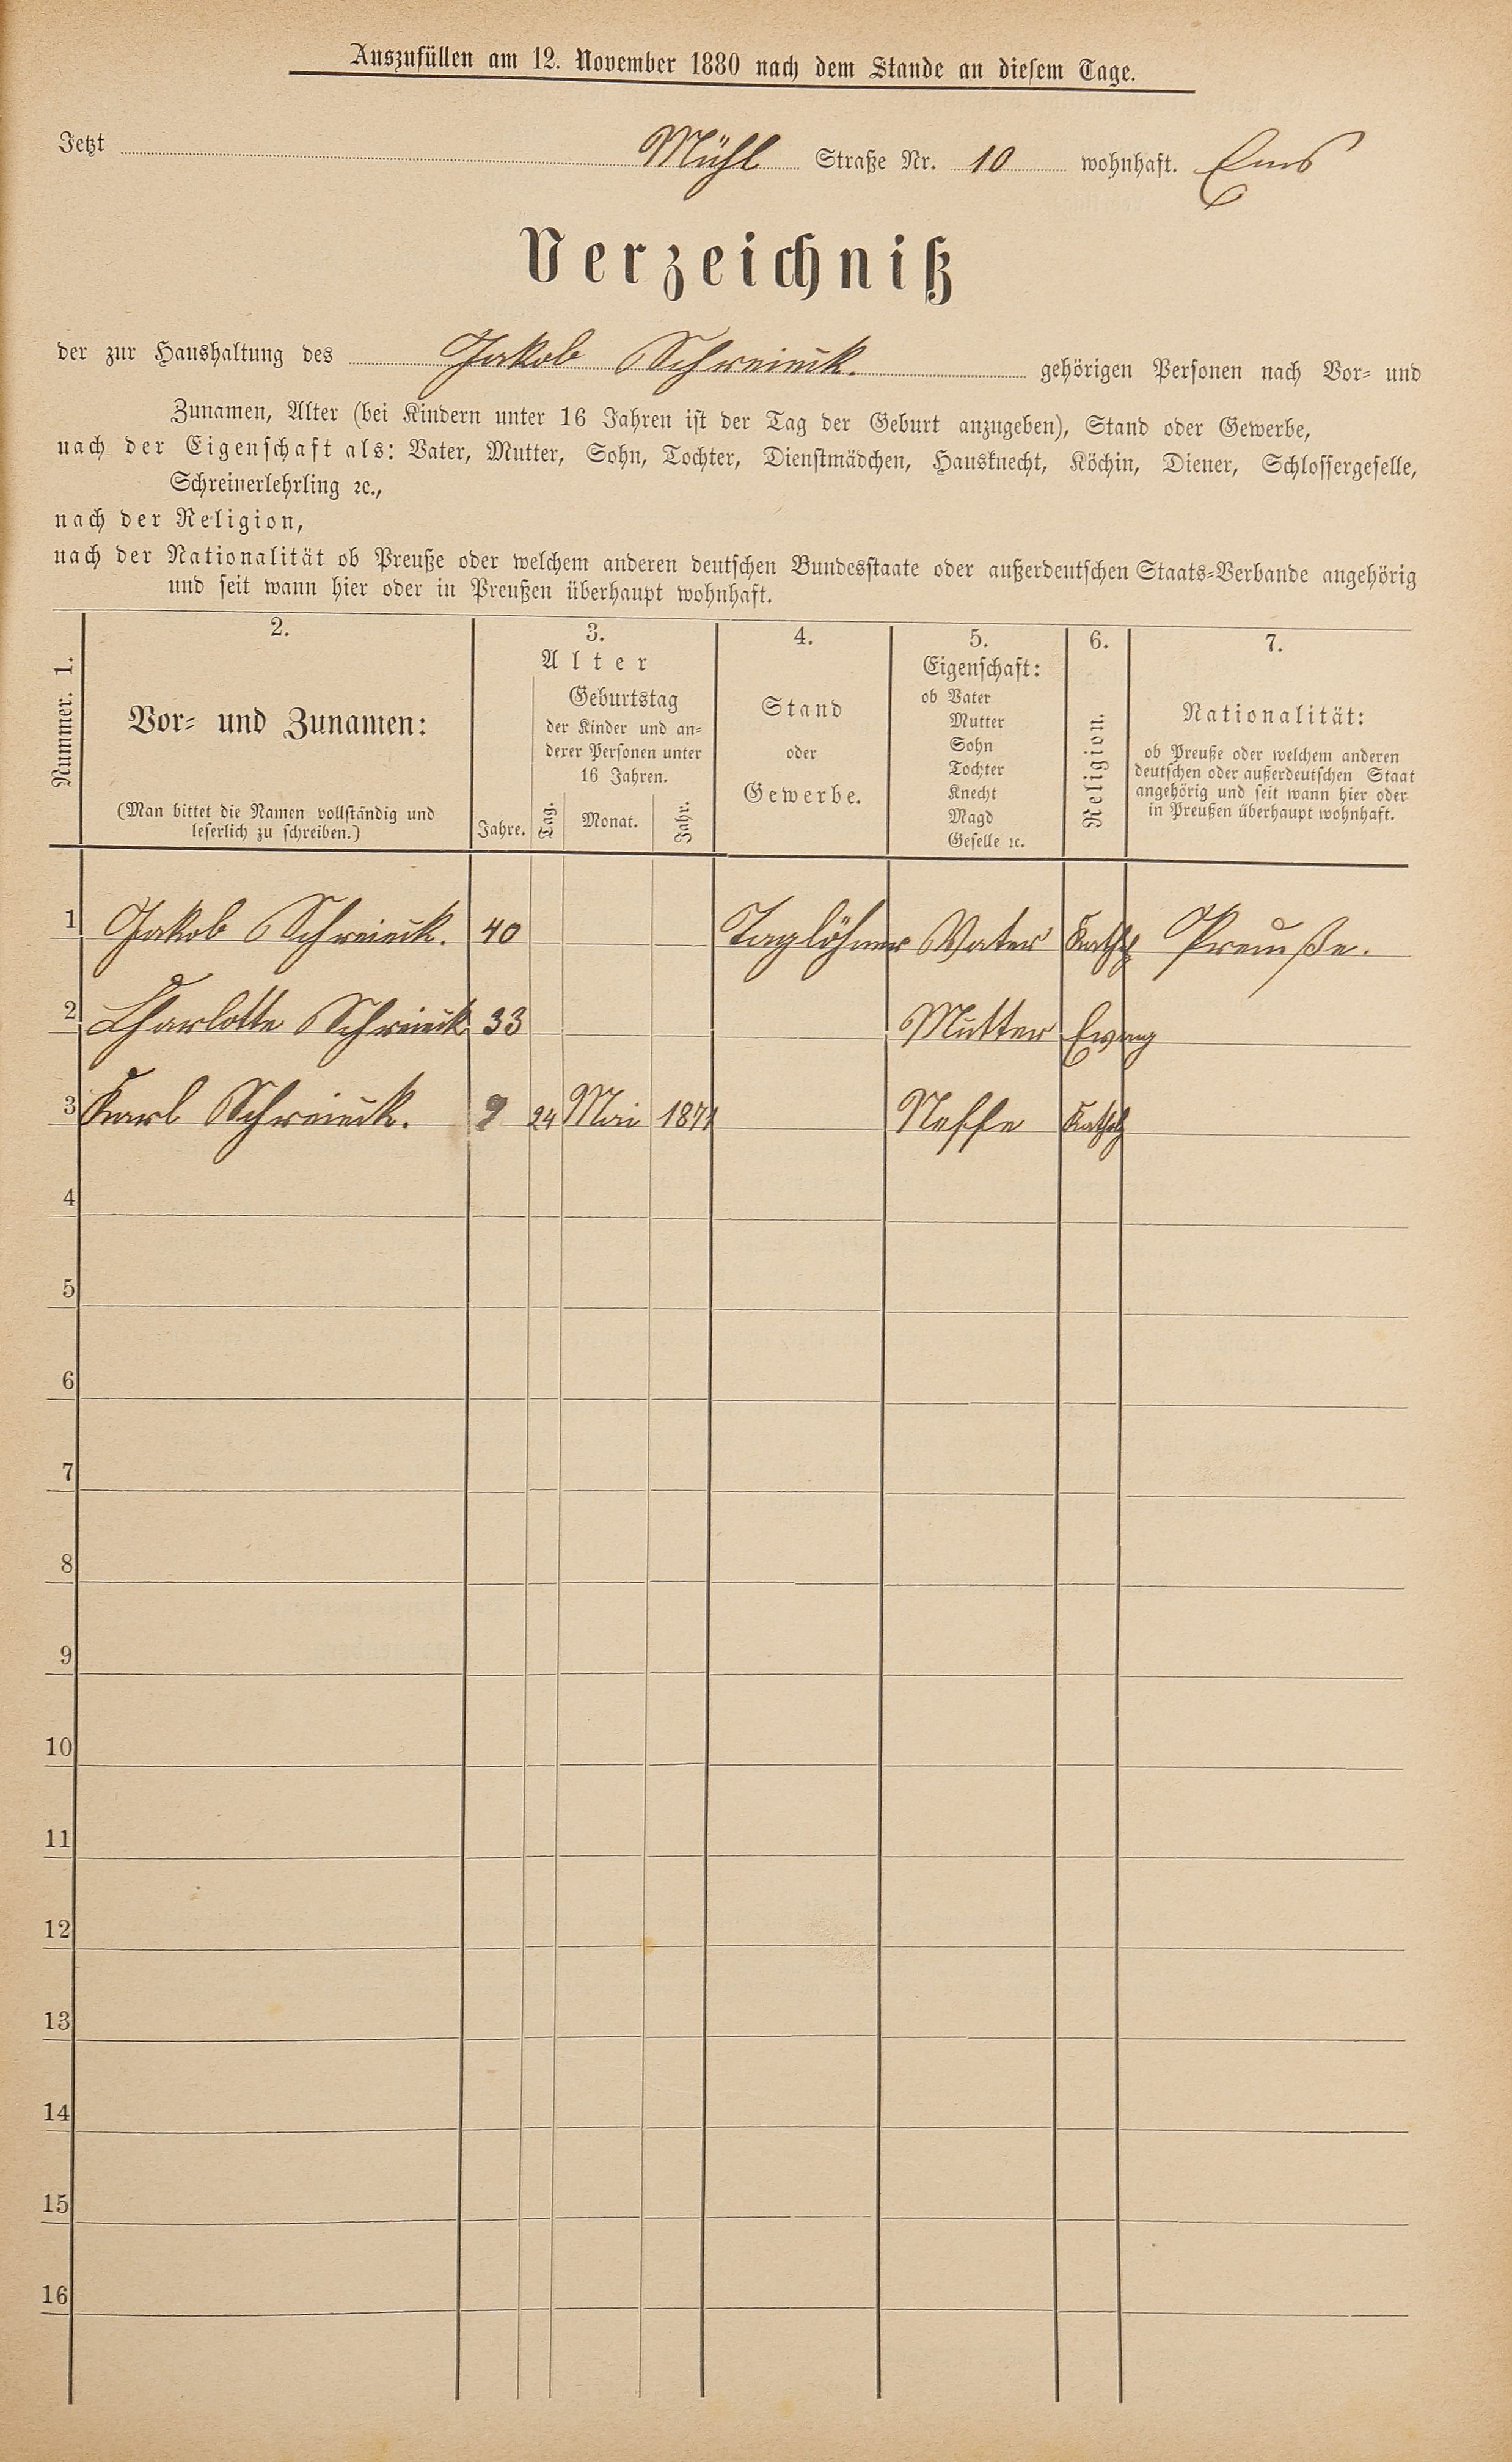 Auszufüllen am 12. November 1880 nach dem Stande an diesem Tage.
Jetzt Mühl Straße Nr. 10 wohnhaft. Ems
Verzeichniß
der zur Haushaltung des Jakob gehörigen Personen nach Vor- und
Zunamen, Alter (bei Kindern unter 16 Jahren ist der Tag der Geburt anzugeben), Stand oder Gewerbe,
nach der Eigenschaft als: Vater, Mutter, Sohn, Tochter, Dienstmädchen, Hausknecht, Köchin, Diener, Schlossergeselle,
Schreinerlehrling ꝛc.,
nach der Religion,
nach der Nationalität ob Preuße oder welchem anderen deutschen Bundesstaate oder außerdeutschen Staats-Verbande angehörig
und seit wann hier oder in Preußen überhaupt wohnhaft.
Nummer. 1.
2.
Vor- und Zunamen:
(Man bittet die Namen vollständig und
leserlich zu schreiben.)
3.
Alter
Jahre.
Geburtstag
der Kinder und an-
derer Personen unter
16 Jahren.
Tag.
Monat.
Jahr.
4.
Stand
oder
Gewerbe.
5.
Eigenschaft:
ob Vater
Mutter
Sohn
Tochter
Knecht
Magd
Geselle ꝛc.
6.
Religion.
7.
Nationalität:
ob Preuße oder welchem anderen
deutschen oder außerdeutschen Staat
angehörig und seit wann hier oder
in Preußen überhaupt wohnhaft.
1 Jakob 40 Taglöhner Vater Kathol Preuße.
2 Charlotte 33 Mutter Evang
3 Karl 9 24 Mai 1871 Neffe Kathol
4
5
6
7
8
9
10
11
12
13
14
15
16